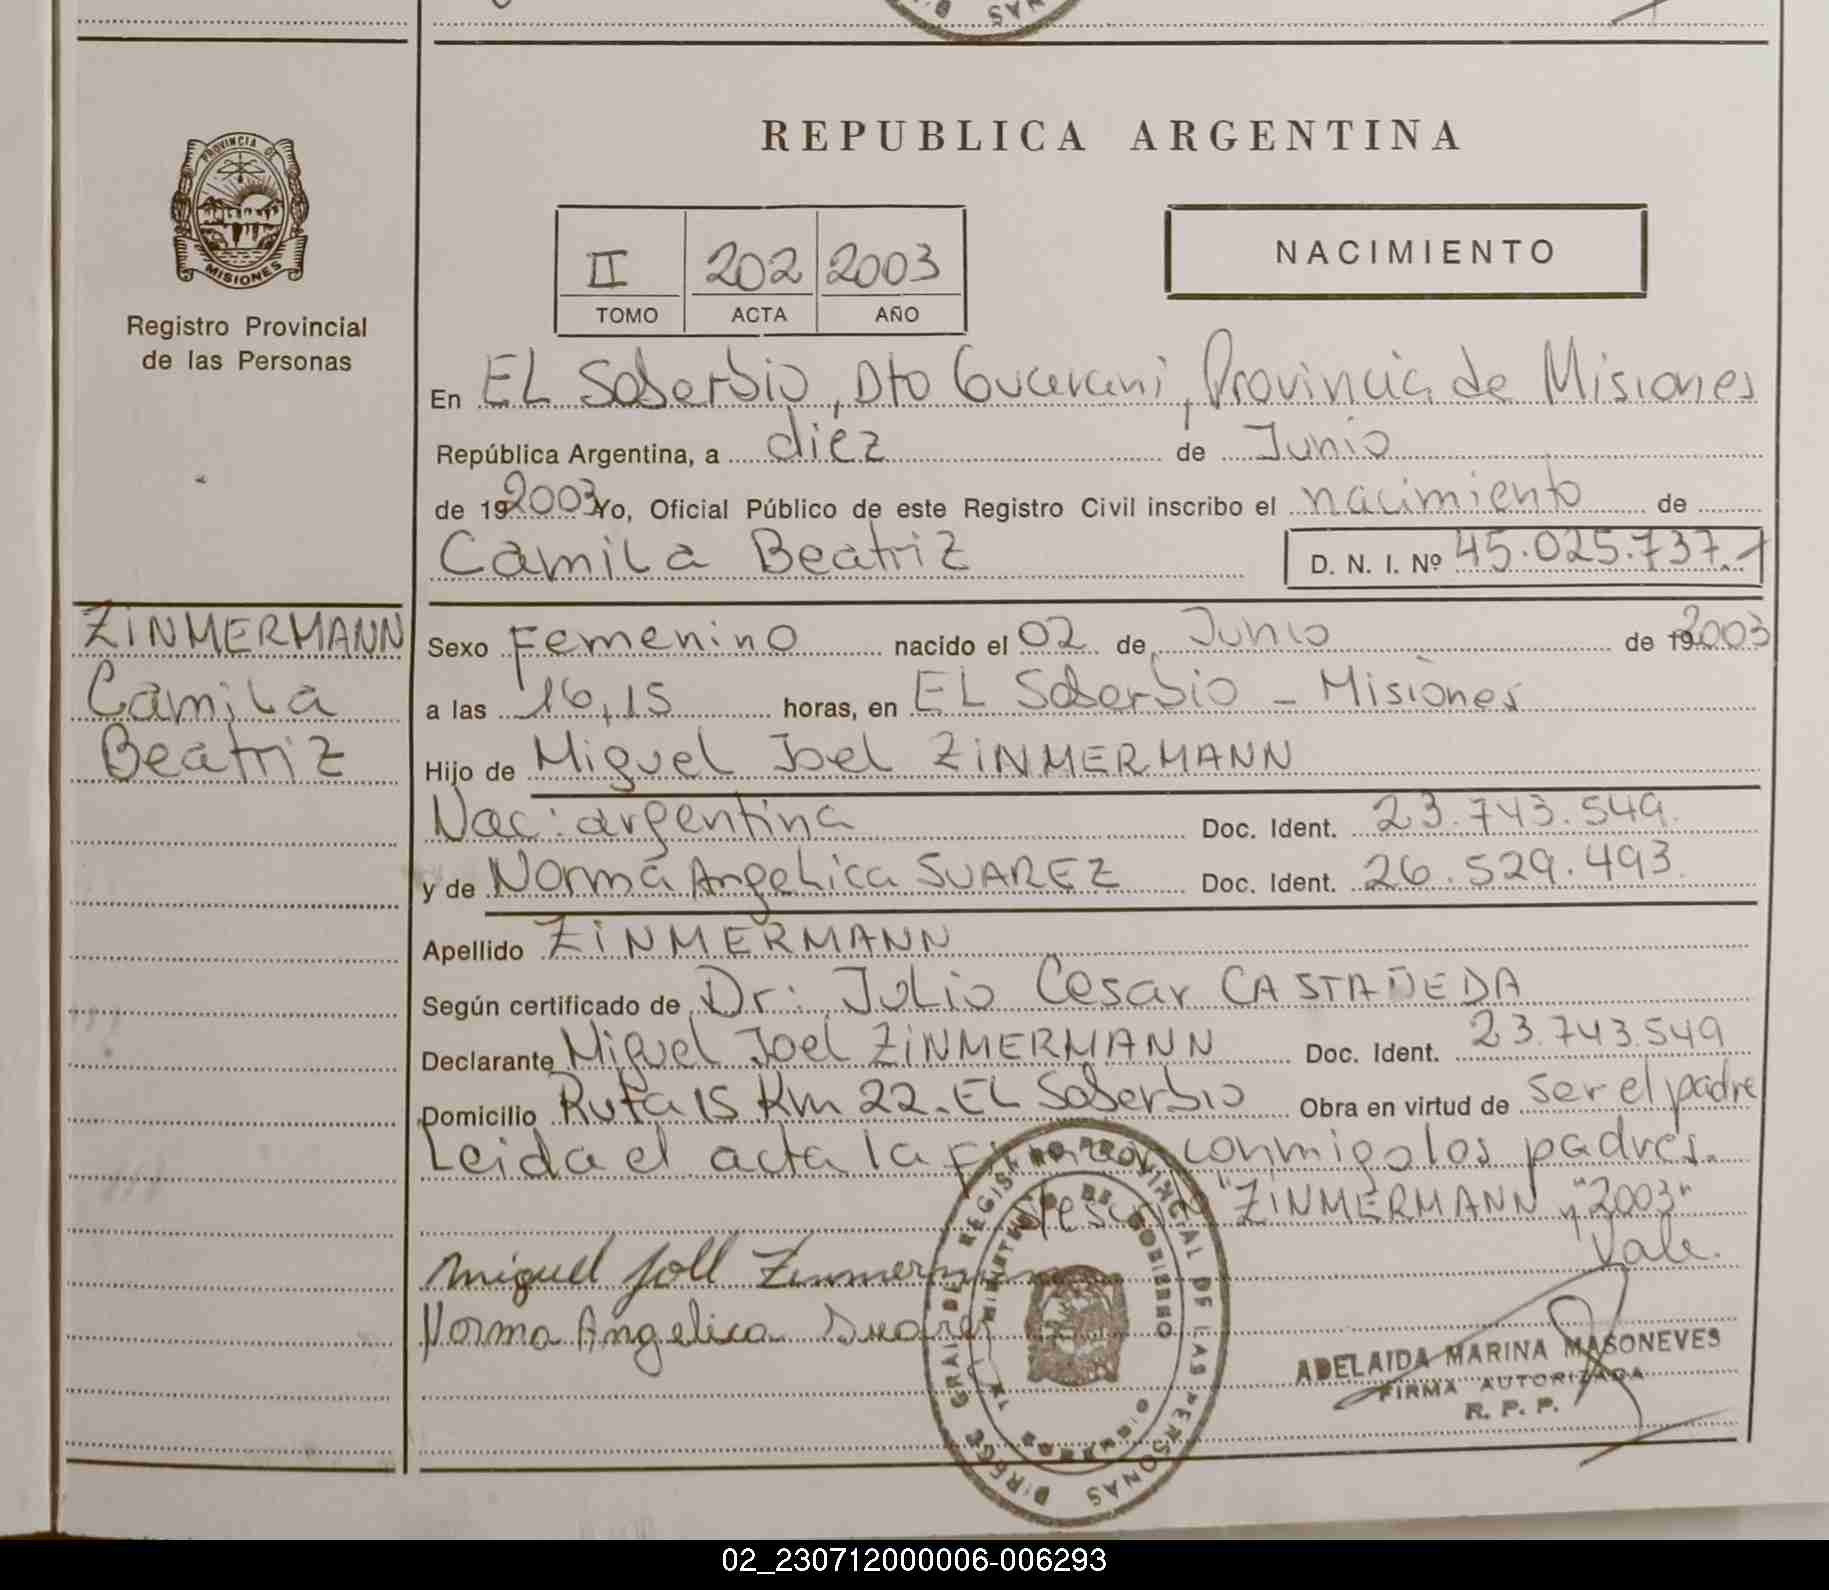 PROVINCIA DE
MISIONES
Registro Provincial
de las Personas
REPUBLICA ARGENTINA
II 202 2003
TOMO ACTA AÑO
NACIMIENTO
En EL Soberbio, Dto Guarani, Provincia de Misiones
República Argentina, a diez de Junio
de 19 2003 Yo, Oficial Público de este Registro Civil inscribo el nacimiento de
Camila Beatriz D. N. I. Nº 45.025.737.
ZiNMERMANN
Camila
Beatriz
Sexo Femenino nacido el 02 de Junio de 19 2003
a las 16,15 horas, en EL Soberbio - Misiones
Hijo de Miguel Joel ZiNMERMANN
Nac: argentina Doc. Ident. 23.743.549.
y de Norma Angelica SUAREZ Doc. Ident. 26.529.493.
Apellido ZiNMERMANN
Según certificado de Dr: Julio Cesar CASTAÑEDA
Declarante Miguel Joel ZiNMERMANN Doc. Ident. 23.743.549
Domicilio Ruta 15 Km 22. EL Soberbio Obra en virtud de ser el padre
Leida el acta la conmigo los padres.
"ZiNMERMANN y "2003"
Vale.
Miguel Joel Zinmermann
Norma Angelica Suarez
REGISTRO PROVINCIAL DE LAS PERSONAS
MINISTERIO DE GOBIERNO
ADELAIDA MARINA MASONEVES
FIRMA AUTORIZADA
R. P. P.
02_230712000006-006293